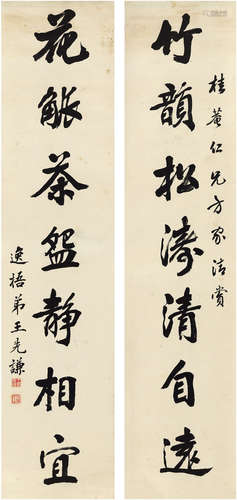 桂菴仁兄方家清赏
竹韻松濤清自遠
花觴茶盌靜相宜
逸梧弟王先謙